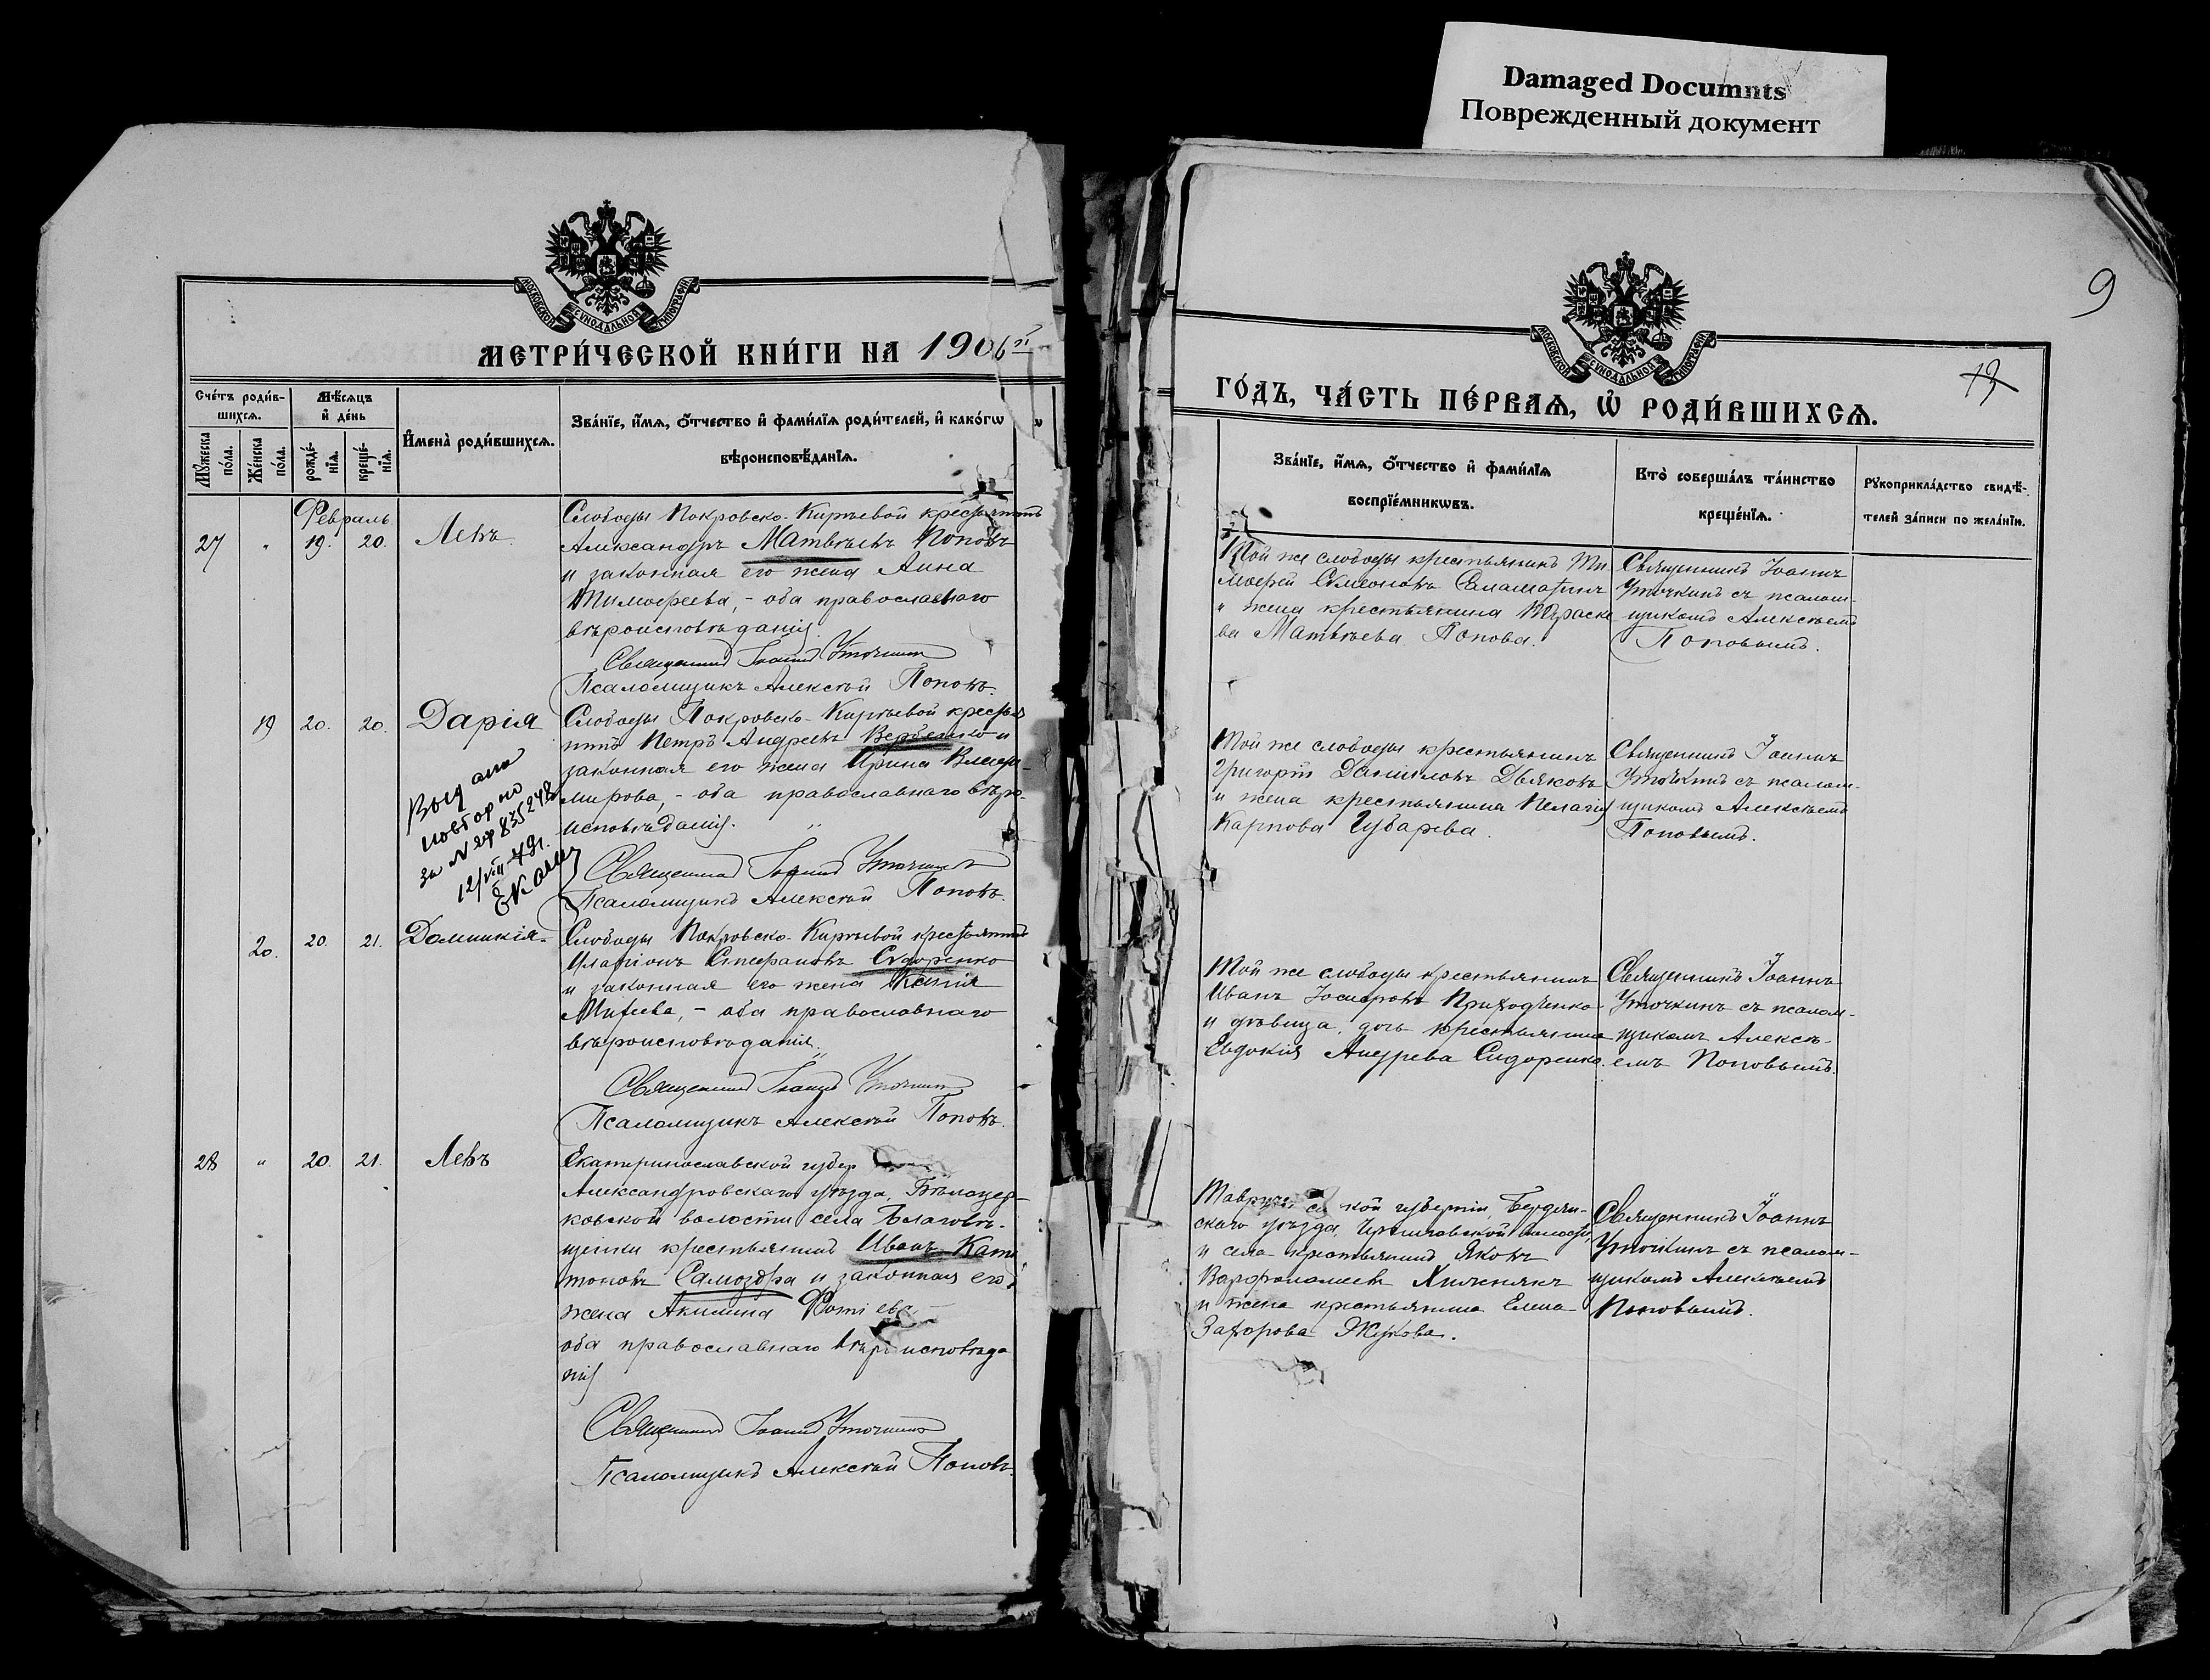 Damaged Documnts
Поврежденный документ
МОСКОВСКОЙ СѴНОДАЛЬНОЙ ТИПОГРАФІИ
МЕТРИ́ЧЕСКОЙ КНИ́ГИ НА 1906й
Сче́тъ роди́в-
шихсѧ.
Мꙋжеска по́ла.
Же́нска по́ла.
Мѣ́сѧцъ
и҆ де́нь
рожде́-
нїѧ.
креще́-
нїѧ.
И҆мена̀ роди́вшихсѧ.
Зва́нїе, и҆́мѧ, ѻ҆́тчество и҆ фами́лїѧ роди́телей, и҆ како́гѡ
вѣроисповѣ́данїѧ.
Февраль
27 " 19. 20. Левъ.
Слободы Покровско-Киръевой крестьянинъ
Александръ Матвѣевъ Поповъ
и законная его жена Анна
Тимофеева, - оба православнаго
вѣроисповѣданія.
Священникъ Іоаннъ Уточкинъ
Псаломщикъ Алексѣй Поповъ.
19 20. 20. Дарія
Слободы Покровско-Киръевой крестья
нинъ Петръ Андреевъ Вербенко и
законная его жена Ирина Влади-
мирова, - оба православнаго вѣро-
исповѣданія.
Священникъ Іоаннъ Уточкинъ
Псаломщикъ Алексѣй Поповъ.
Выдано
повторно
за N 835248
12/VIII-49г.
20. 20. 21. Домникія.
Слободы Покровско-Киръевой крестьянинъ
Иларіонъ Стефановъ Сидоренко
и законная его жена Ксенія
Михеева, - оба православнаго
вѣроисповѣданія.
Священникъ Іоаннъ Уточкинъ
Псаломщикъ Алексѣй Поповъ.
28 " 20. 21. Левъ
Екатеринославской губер
Александровскаго уѣзда, Бѣлоцер-
ковской волости села Благовѣ-
щенки крестьянинъ Иванъ Капи
тоновъ Самоздра и законная его
жена Акилина Фотіева
оба православнаго вѣроисповѣда
нія
Священникъ Іоаннъ Уточкинъ
Псаломщикъ Алексѣй Поповъ.
9
13
МОСКОВСКОЙ СѴНОДАЛЬНОЙ ТИПОГРАФІИ
ГО́ДЪ, ЧА́СТЬ ПЕ́РВАѦ, Ѡ҆ РОДИ́ВШИХСѦ.
Зва́нїе, и҆́мѧ, ѻ҆́тчество и҆ фами́лїѧ
воспрїе́мникѡвъ.
Кто̀ соверша́лъ та́инство
креще́нїѧ.
Рꙋкоприкла́дство свидѣ́-
телей за́писи по жела́нїю.
Той же слободы крестьянинъ Ти
мофей Симеоновъ
и жена крестьянина Параске
ва Матвѣева Попова.
Священникъ Іоаннъ
Уточкинъ съ псалом-
щикомъ Алексѣемъ
Поповымъ.
Той же слободы крестьянинъ
Григорій Даниловъ Дьяковъ
и жена крестьянина Пелагія
Карпова Губарева.
Священникъ Іоаннъ
Уточкинъ съ псалом-
щикомъ Алексѣемъ
Поповымъ.
Той же слободы крестьянинъ
Иванъ Іосифовъ Приходченко
и дѣвица, дочь крестьянина
Евдокія Андреева Сидоренко.
Священникъ Іоаннъ
Уточкинъ съ псалом-
щикомъ Алексѣ-
емъ Поповымъ.
Таврической губерніи, Бердян-
скаго уѣзда, Черниговской волости
и села крестьянинъ Яковъ
Варфоломеевъ Хижнякъ
и жена крестьянина Елена
Захарова Жукова.
Священникъ Іоаннъ
Уточкинъ съ псалом-
щикомъ Алексѣемъ
Поповымъ.